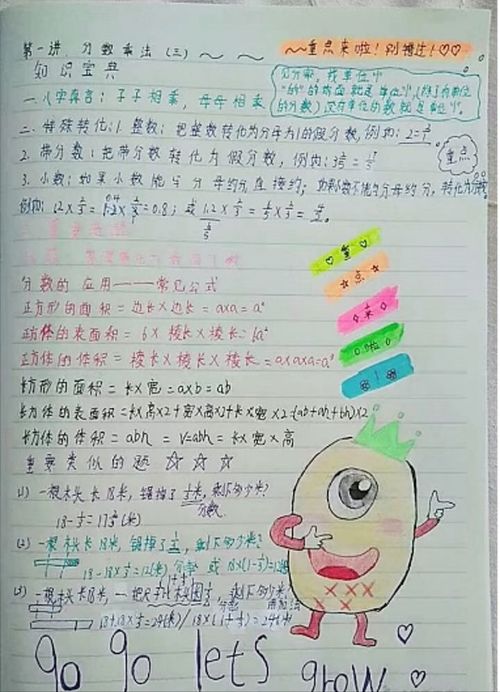 第一讲 分数乘法(三)
~重点来啦!别错过!♡♡
知识宝典
分分率,找单位"1"
"的"的前面就是单位"1"
的分数)没有单位的数就是单位"1"。
一.八字真言:子子相乘,母母相乘
二.特殊转化:1.整数:把整数转化为分母为1的假分数,例如:2=2/1
2.带分数:把带分数转化为假分数,例如:
重点
3.小数:如果小数能与分母约分直接约;如果小数不能与分母约分,转化为分数
例如:1.2×2/3=1.2×2/3=0.8;或1.2×2/3=6/5×2/3=4/5。
分数的应用——常见公式
正方形的面积=边长×边长=a×a=a²
正方体的表面积=6×棱长×棱长=6a²
正方体的体积=棱长×棱长×棱长=a×a×a=a³
长方形的面积=长×宽=a×b=ab
长方体的表面积=长×高×2+宽×高×2+长×宽×2=(ab+ah+bh)×2
长方体的体积=abh=V=abh=长×宽×高
♡重♡
☆点☆
来
啦
!
重要类似的题☆☆☆
(1)一根木头长18米,锯掉了1/2米,剩下多少米?
分数
18-1/2=17 1/2(米)
(2)一根木头长18米,锯掉了1/3,剩下多少米?
18-18×1/3=12(米) 分率 或18×(1-1/3)=12米
(3)一根木头长18米,
18+18×1/3=24(米)/18×(1+1/3)=24(米)
go go lets grow